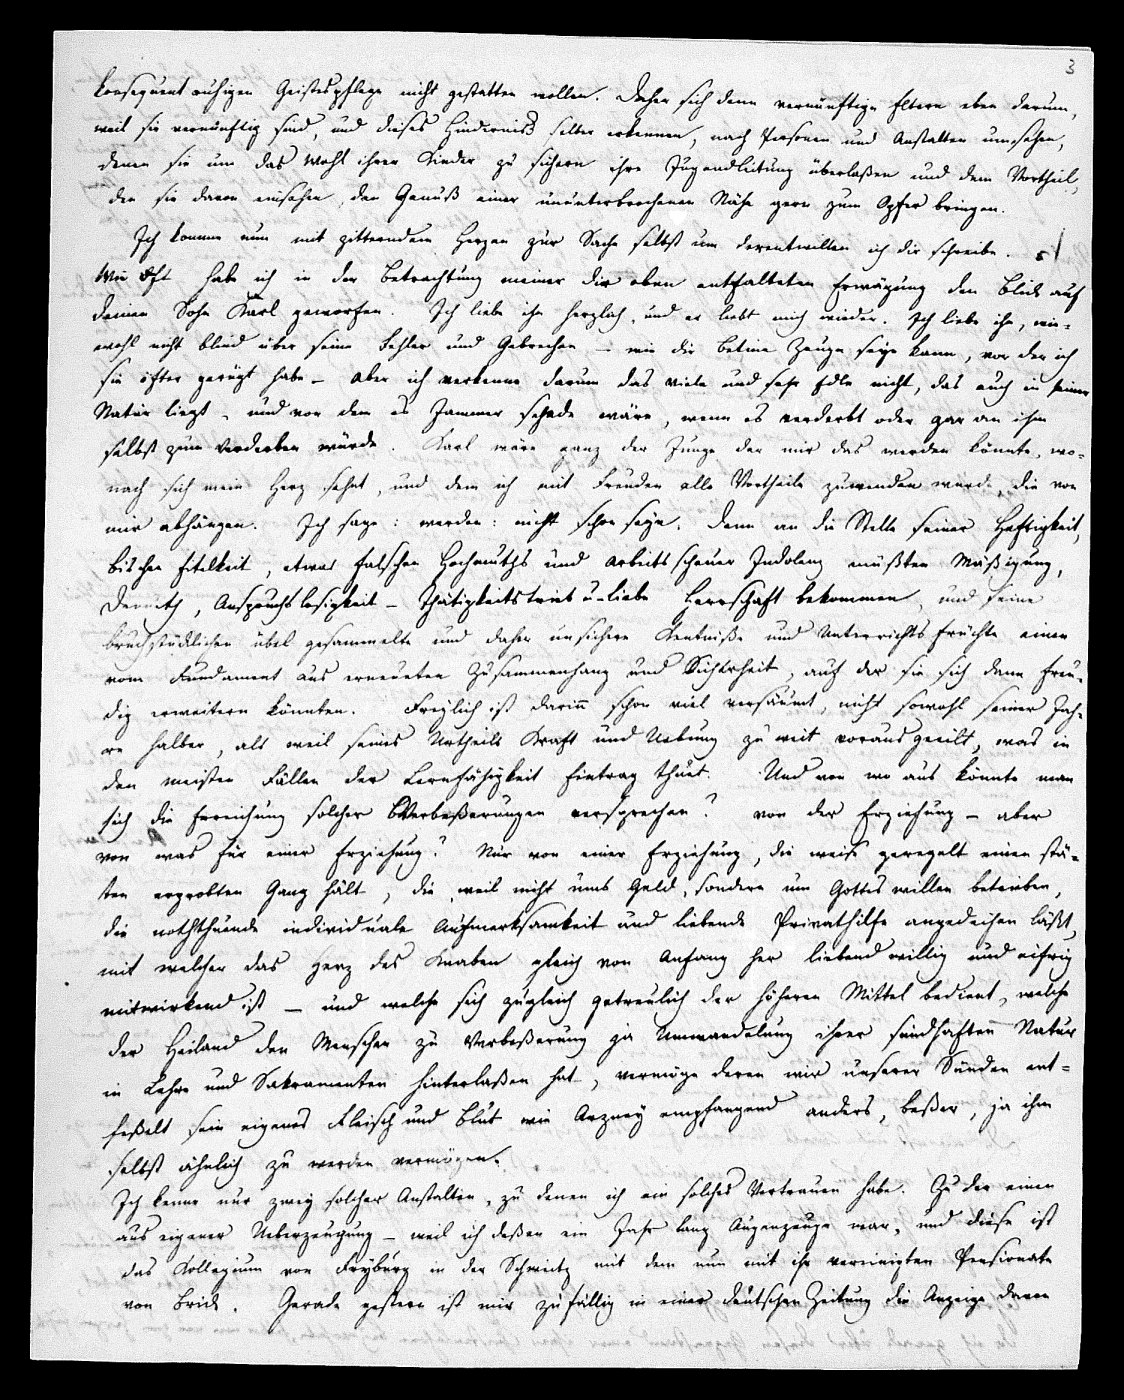 3
konsequent ruhigen Geistespflege nicht gestatten wollen. Daher sich denn vernünftige Eltern eben darum,
weil sie vernünftig sind, und dieses Hinderniß selber erkennen, nach Personen und Anstalten umsehen,
denen sie um das Wohl ihrer Kinder zu sichern ihre Jugendleitung überlaßen und dem Vortheil,
den sie davon einsehen, den Genuß einer ununterbrochenen Nähe gern zum Opfer bringen.
Ich komme nun mit zitterndem Herzen zur Sache selbst um derentwillen ich dir schreibe.
Wie oft habe ich in der Betrachtung meiner dir oben entfalteten Erwägung den Blick auf
deinen Sohn Karl geworfen. Ich liebe ihn herzlich, und er liebt mich wieder. Ich liebe ihn, wie-
wohl nicht blind über seine Fehler und Gebrechen – wie die Betine Zeuge seyn kann, vor der ich
sie öfter gerügt habe – aber ich verkenne darum das viele und sehr Edle nicht, das auch in seiner
Natur liegt, und von dem es Jammer schade wäre, wenn es verderbt oder gar an ihm
selbst zum Verderben würde. Karl wäre ganz der Junge der mir das werden könnte, wo-
nach sich mein Herz sehnt, und dem ich mit Freuden alle Vortheile zuwenden würde, die von
mir abhängen. Ich sage: werden: nicht schon seyn. Denn an die Stelle seiner Heftigkeit,
bischen Eitelkeit, etwas falschen Hochmuths und arbeitsscheuer Indolenz müßten Mäßigung,
Demuth, Anspruchslosigkeit – Thätigkeitstrieb u – liebe Herrschaft bekommen, und seine
bruchstücklichen übel gesammelte und daher unsichere Kentniße und Unterrichtsfrüchte einen
vom Fundament aus erneueten Zusammenhang und Sicherheit, auf der sie sich dann freu-
dig erweitern könnten. Freylich ist darinn schon viel versäumt, nicht sowohl seiner Jah-
re halber, als weil seines Urtheils Kraft und Uebung zu weit vorausgeeilt, was in
den meisten Fällen der Lernfähigkeit Eintrag thuet. Und von wo aus könnte man
sich die Erreichung solcher Verbeßerungen versprechen? von der Erziehung – aber
von was für einer Erziehung? Nur von einer Erziehung, die weise geregelt einen stä-
ten erprobten Gang hält, die, weil nicht ums Geld, sondern um Gottes willen betrieben,
die noththuende individuale Aufmerksamkeit und liebende Privathilfe angedeihen läßt,
mit welcher das Herz des Knaben gleich von Anfang her liebend willig und eifrig
mitwirkend ist – und welche sich zugleich getreulich der höheren Mittel bedient, welche
der Heiland den Menschen zu Verbeßerung ja Umwandelung ihrer sündhaften Natur
in Lehre und Sakramenten hinterlaßen hat, vermöge deren wir unserer Sünden ent-
feßelt sein eigenes Fleisch und Blut wie Arzney empfangend anders, beßer, ja ihm
selbst ähnlich zu werden vermögen.
Ich kenne nur zwey solcher Anstalten, zu denen ich ein solches Vertrauen habe. Zu der einen
aus eigener Ueberzeugung – weil ich deßen ein Jahr lang Augenzeuge war, und diese ist
das Kollegium von Fryburg in der Schweitz mit dem nun mit ihr vereinigten Pensionate
von Brick. Gerade gestern ist mir zufällig in einer deutschen Zeitung die Anzeige davon